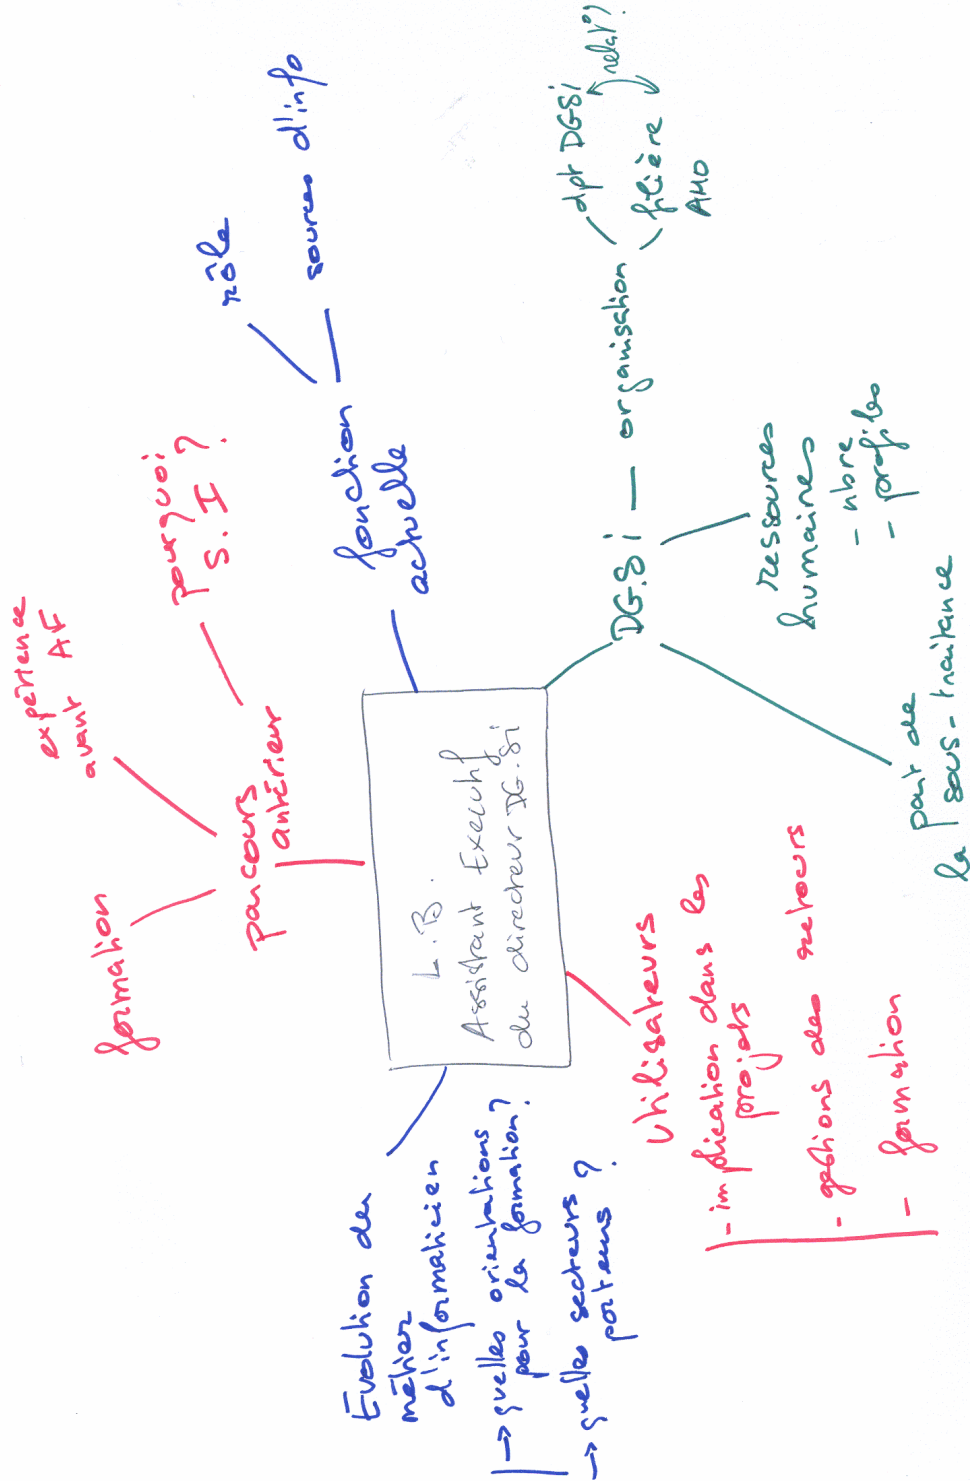 L.B.
Assistant Executif
du directeur DG.Si
parcours
antérieur
formation
expérience
avant AF
pourquoi
S.I ?
fonction
actuelle
rôle
sources d'info
DG.Si
organisation
dpt DGSi
filière
AMO
relat° ?
ressources
humaines
- nbre
- profiles
part de
la sous-traitance
Utilisateurs
- implication dans les
projets
- gestions des retours
- formation
Evolution du
métier
d'informaticien
→ quelles orientations
pour la formation ?
→ quelles secteurs
porteurs ?